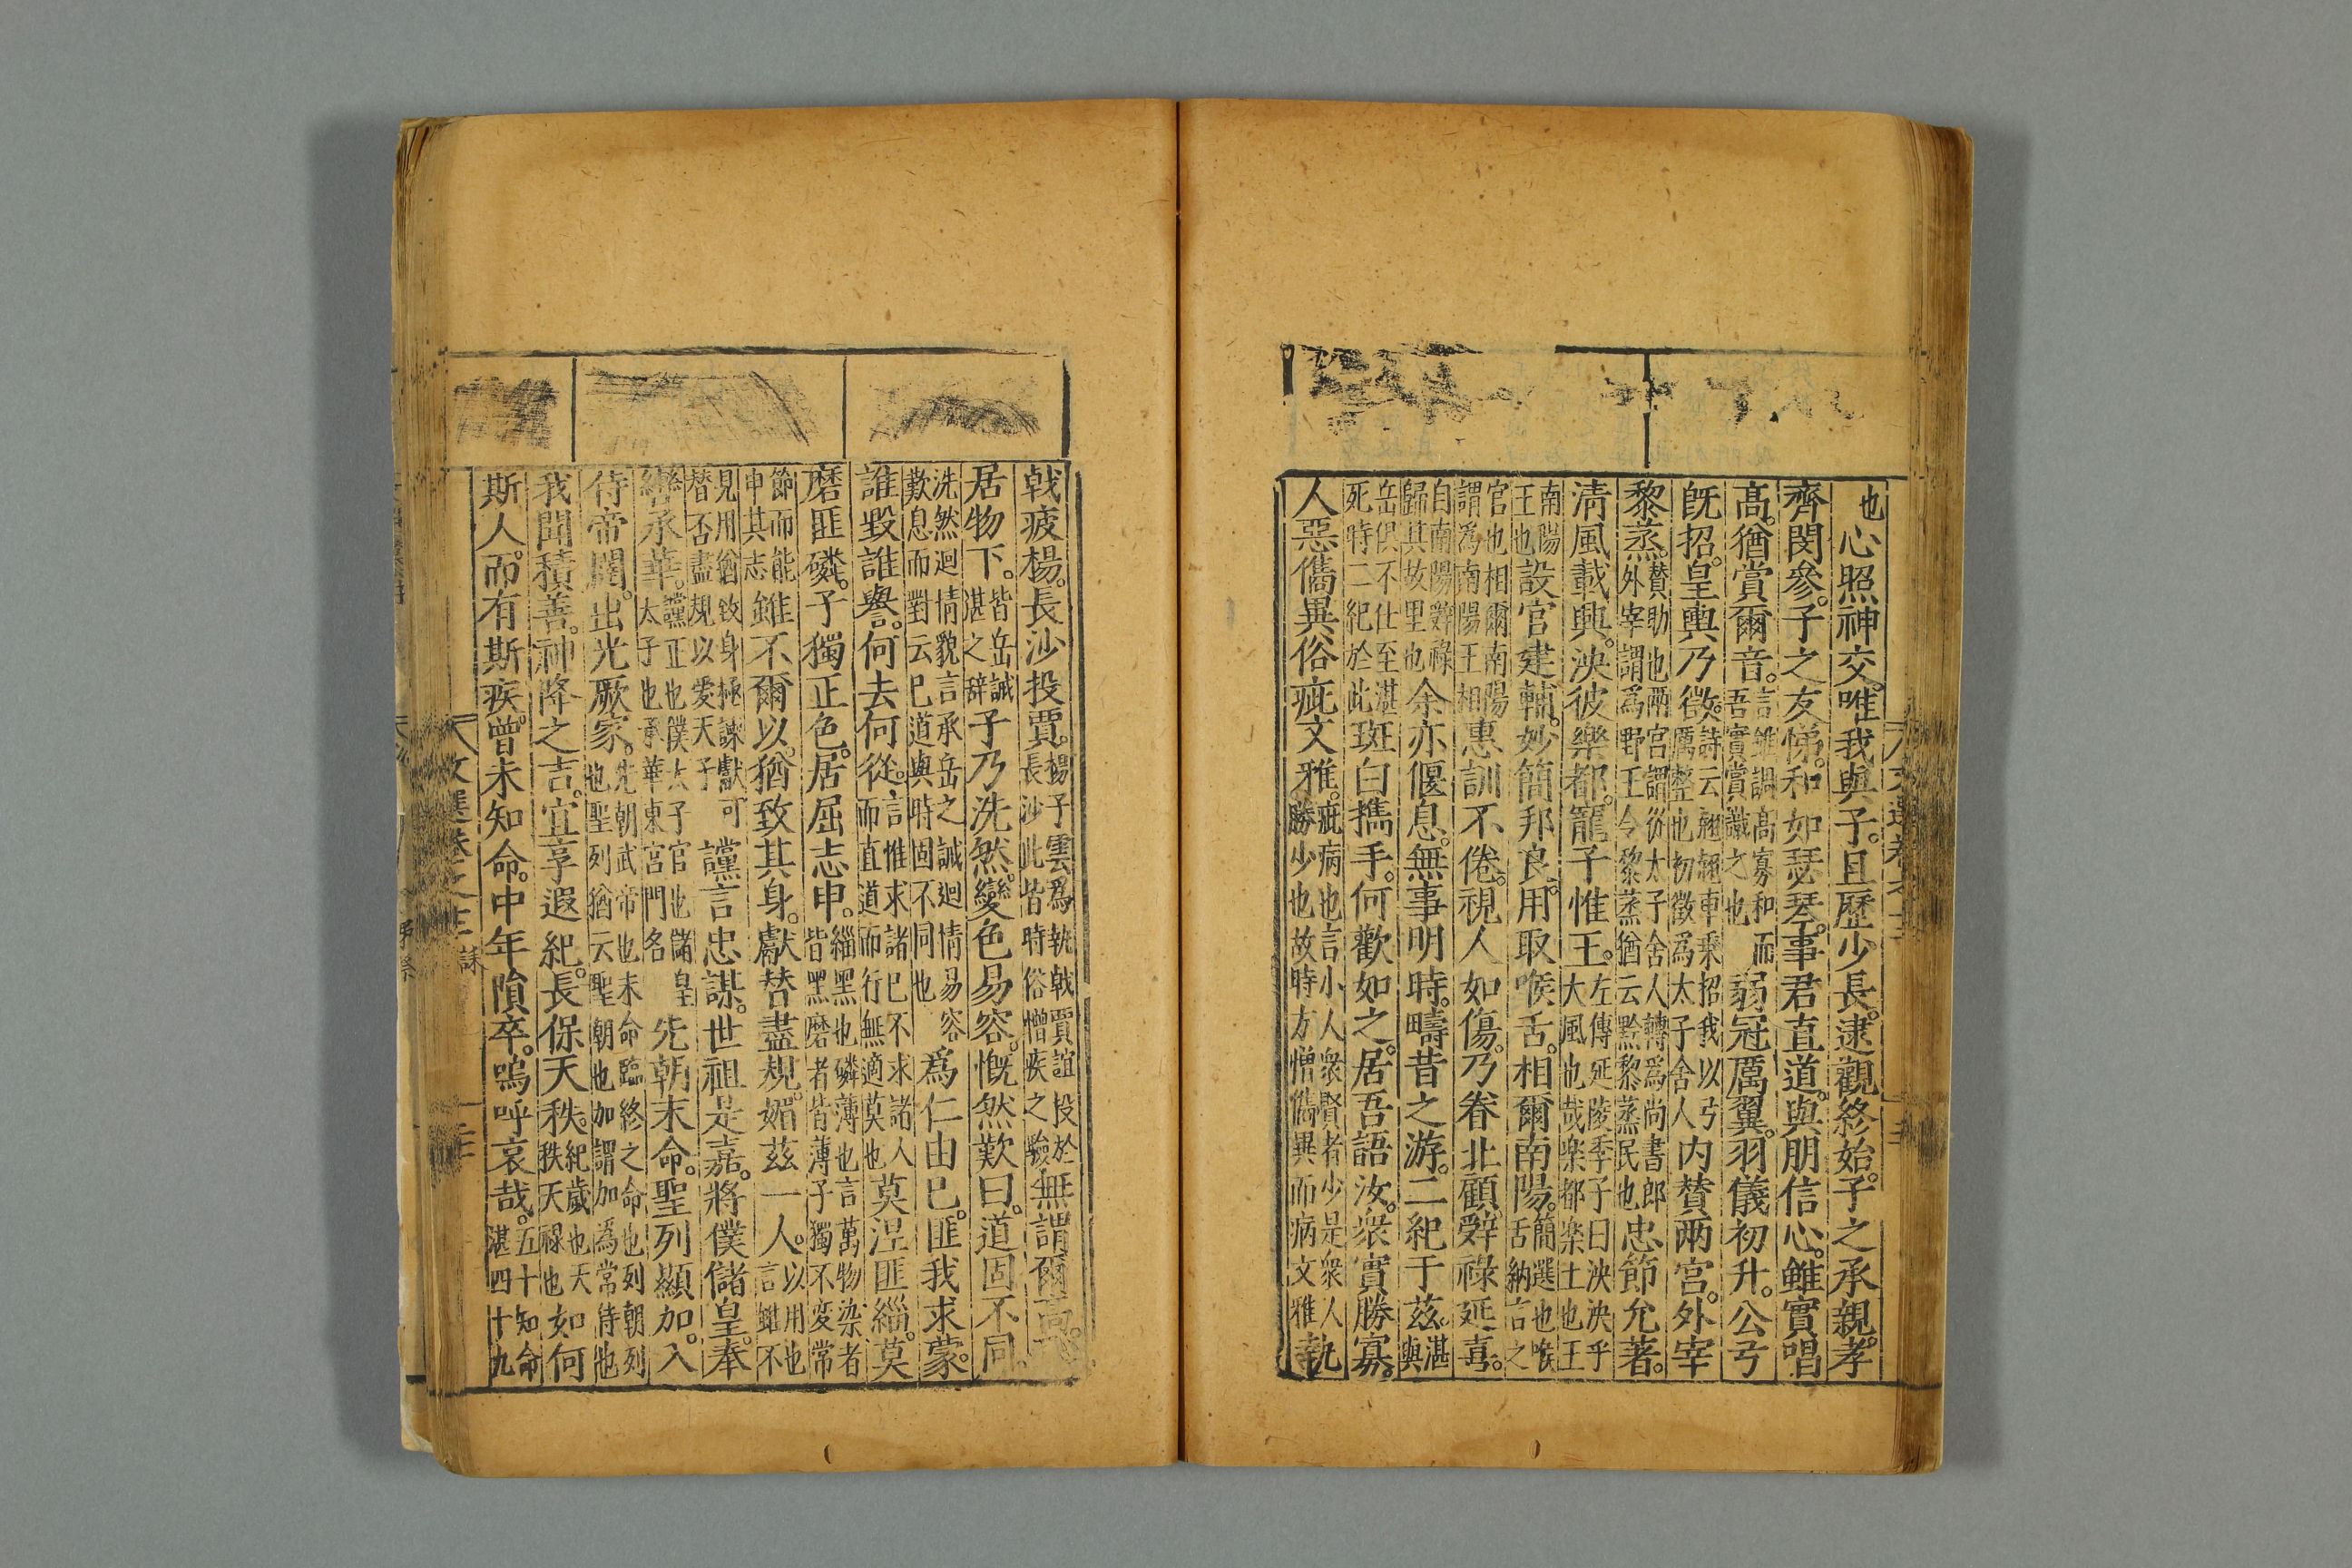 也心照神交。唯我與子。且歷少長。逮觀終始。子之承親。孝
齊閔參。子之友悌。和如瑟琴。事君直道。與朋信心。雖實唱
高。猶賞爾音。言雖調高寡和而吾實賞識之也弱冠厲翼。羽儀初升。公弓
既招。皇輿乃徵。詩云翹翹車乘招我以弓厲整也初徵為太子舍人内賛兩宮。外宰
黎蒸。賛助也兩宮謂從太子舍人轉為尚書郎外宰謂為野王令黎蒸猶云黔黎蒸民也忠節允著。
清風載興。泱彼樂都。寵子惟王。左傳延陵季子曰泱泱乎大風也哉樂都樂土也王
南陽王也設官建輔。妙簡邦良。用取喉舌。相爾南陽。簡選也喉舌納言之
官也相爾南陽謂為南陽王相惠訓不倦。視人如傷。乃眷北顧。辭祿延喜。
自南陽辭祿歸其故里也余亦偃息。無事明時。疇昔之游。二紀于茲。湛與
岳俱不仕至湛死時二紀於此斑白攜手。何歡如之。居吾語汝。衆實勝寡。
人惡儁異。俗疵文雅。疵病也言小人衆賢者少是衆人勝少也故時方憎儁異而病文雅執
戟疲楊。長沙投賈。楊子雲為執戟賈誼投於長沙此皆時俗憎疾之驗無謂爾高。
居物下。皆岳誡湛之辞子乃洗然。變色易容。慨然歎曰。道固不同。
洗然迴情貌言承岳之誡迴情易容歎息而對云已道與時固不同也為仁由已。匪我求蒙。
誰毀誰譽。何去何從。言惟求諸已不求諸人而直道而行無適莫也莫涅匪緇。莫
磨匪磷。子獨正色。居屈志申。緇黑也磷薄也言萬物染者皆黑磨者皆薄子獨不変常
節而能申其志雖不爾以。猶致其身。獻替盡規。媚茲一人。以用也言雖不
見用猶致身極諫獻可替否盡規以愛天子讜言忠謀。世祖是嘉。將僕儲皇。奉
轡承華。讜正也僕太子官也儲皇太子也承華東宮門名先朝末命。聖列顯加。入
侍帝闈。出光厥家。先朝武帝也末命臨終之命也列朝列也聖列猶云聖朝也加謂加為常侍也
我聞積善。神降之吉。宜享遐紀。長保天秩。紀歲也天秩天祿也如何
斯人。而有斯疾。曾未知命。中年隕卒。嗚呼哀哉。五十知命湛四十九
文選卷之 誄